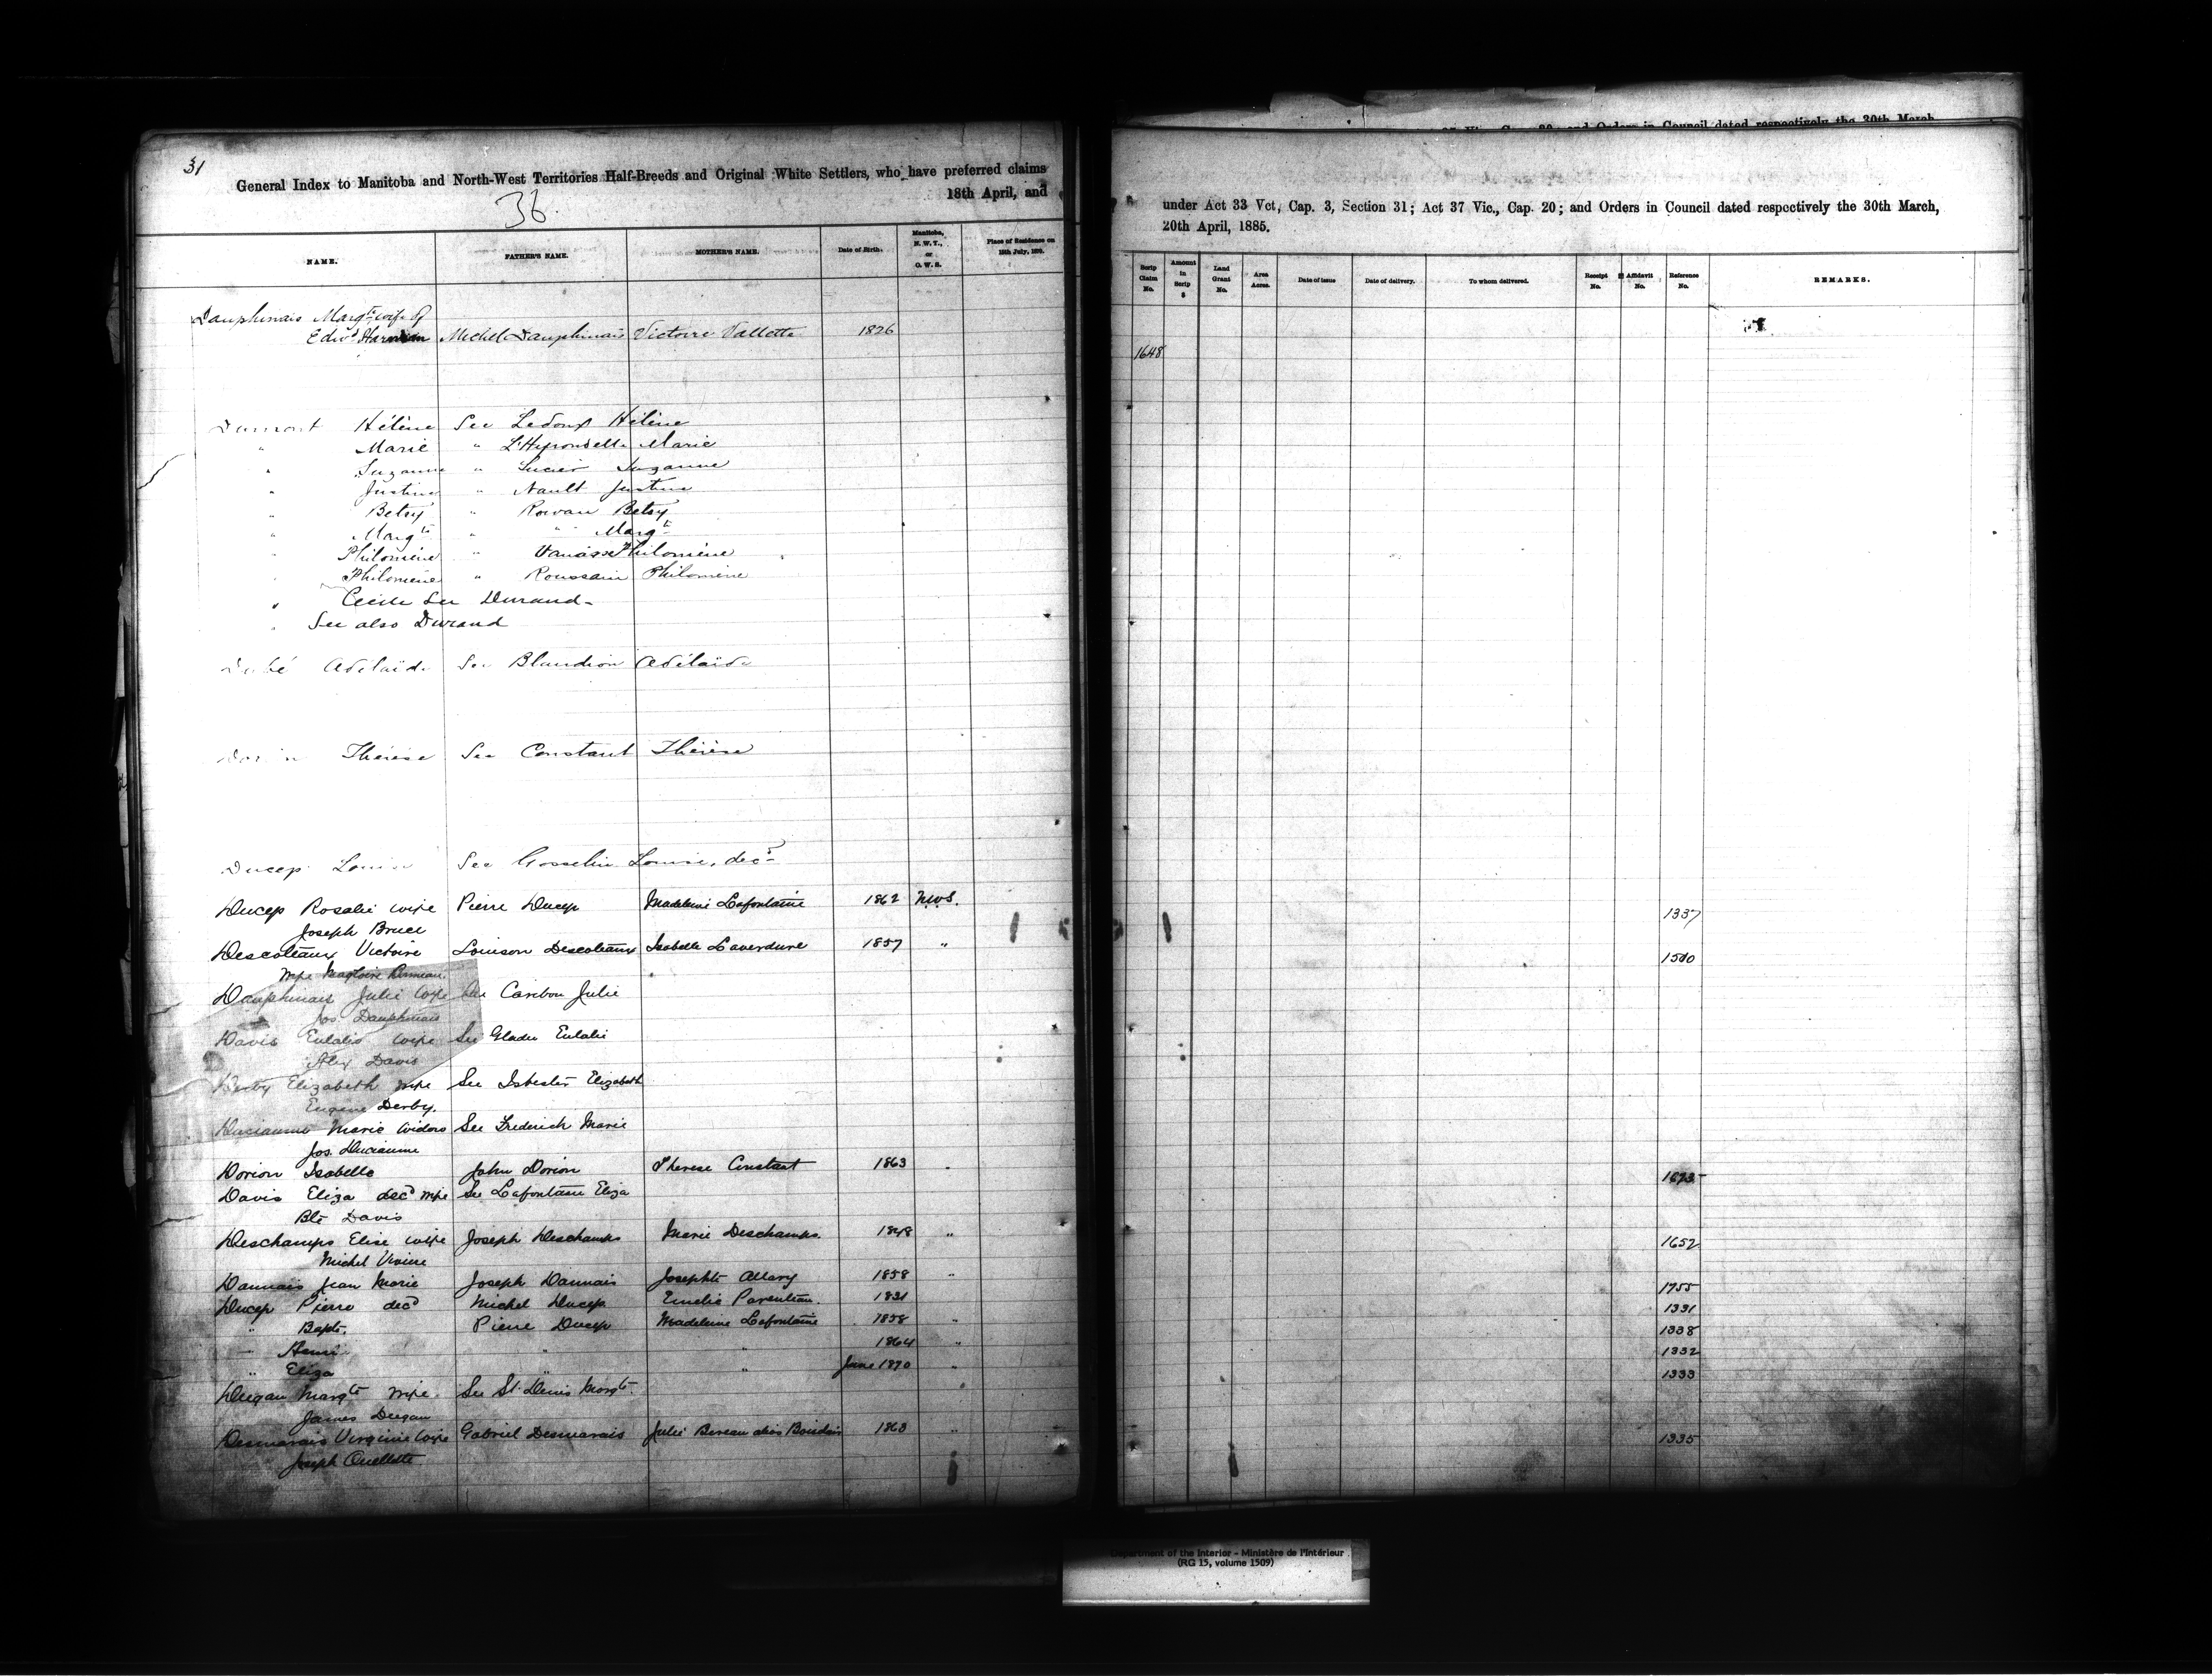 31
General Index to Manitoba and North-West Territories Half-Breeds and Original White Settlers, who have preferred claims
18th April, and
36.
NAME. FATHER'S NAME. MOTHER'S NAME. Date of Birth. Manitoba, N. W. T., or O. W. S. Place of Residence on 15th July, 1870.
Dauphinais Margte wife of
Edwd Harman Michel Dauphinais Victoire Vallette 1826
Dumont Hélène See Ledoux Hélène
" Marie " L'Hyrondelle Marie
" Suzanne " Lucier Suzanne
" Justine " Nault Justine
" Betsy " Rowan Betsy
" Margte " " Margt
" Philomène " Vanasse Philomène
" Philomène " Roussain Philomène
" Cécile See Durand-
" See also Durand
Dubé Adélaïde See Blandion Adélaïde
Dorion Thérèse See Constant Thérèse
Ducep Louise See Gosselin Louise, decd
Ducep Rosalie wife Pierre Ducep Madeleine Lafontaine 1862 N.W.S.
Joseph Bruce
Descoteaux Victoire Louison Descoteaux Isabelle Laverdure 1857 "
wife Magloire
Dauphinais Julie wife See Caribou Julie
Jos. Dauphinais
Davis Eulalie wife See Gladu Eulalie
Alex Davis
Derby Elizabeth wife See Isbester Elizabeth
Eugene Derby.
Ducianme Marie widow See Frederich Marie
Jos. Ducianme
Dorion Isabelle John Dorion Therese Constant 1863 "
Davis Eliza decd wife See Lafontaine Eliza
Bte Davis
Deschamps Elise wife Joseph Deschamps Marie Deschamps. 1848 "
Michel
Daunais Jean Marie Joseph Daunais Josephte Allary 1858 "
Ducep Pierre decd Michel Ducep Emelie Parenteau. 1831
" Bapte. Pierre Ducep Madeleine Lafontaine 1858 "
" Henri " " 1864 "
" Eliza " " June 1870 "
Deegan Margte wife See St. Denis Margte.
James Deegan
Desmarais Virginie wife Gabriel Desmarais Julie Bereau alias 1863 "
Joseph Ouellette
under Act 33 Vct, Cap. 3, Section 31; Act 37 Vic., Cap. 20; and Orders in Council dated respectively the 30th March,
20th April, 1885.
Scrip Claim No. Amount in Scrip $ Land Grant No. Area Acres. Date of issue Date of delivery. To whom delivered. Receipt No. Affidavit No. Reference No. REMARKS.
1648
1337
1500
1673
1652
1755
1331
1338
1332
1333
1335
Department of the Interior - Ministère de l'Intérieur
(RG 15, volume 1509)